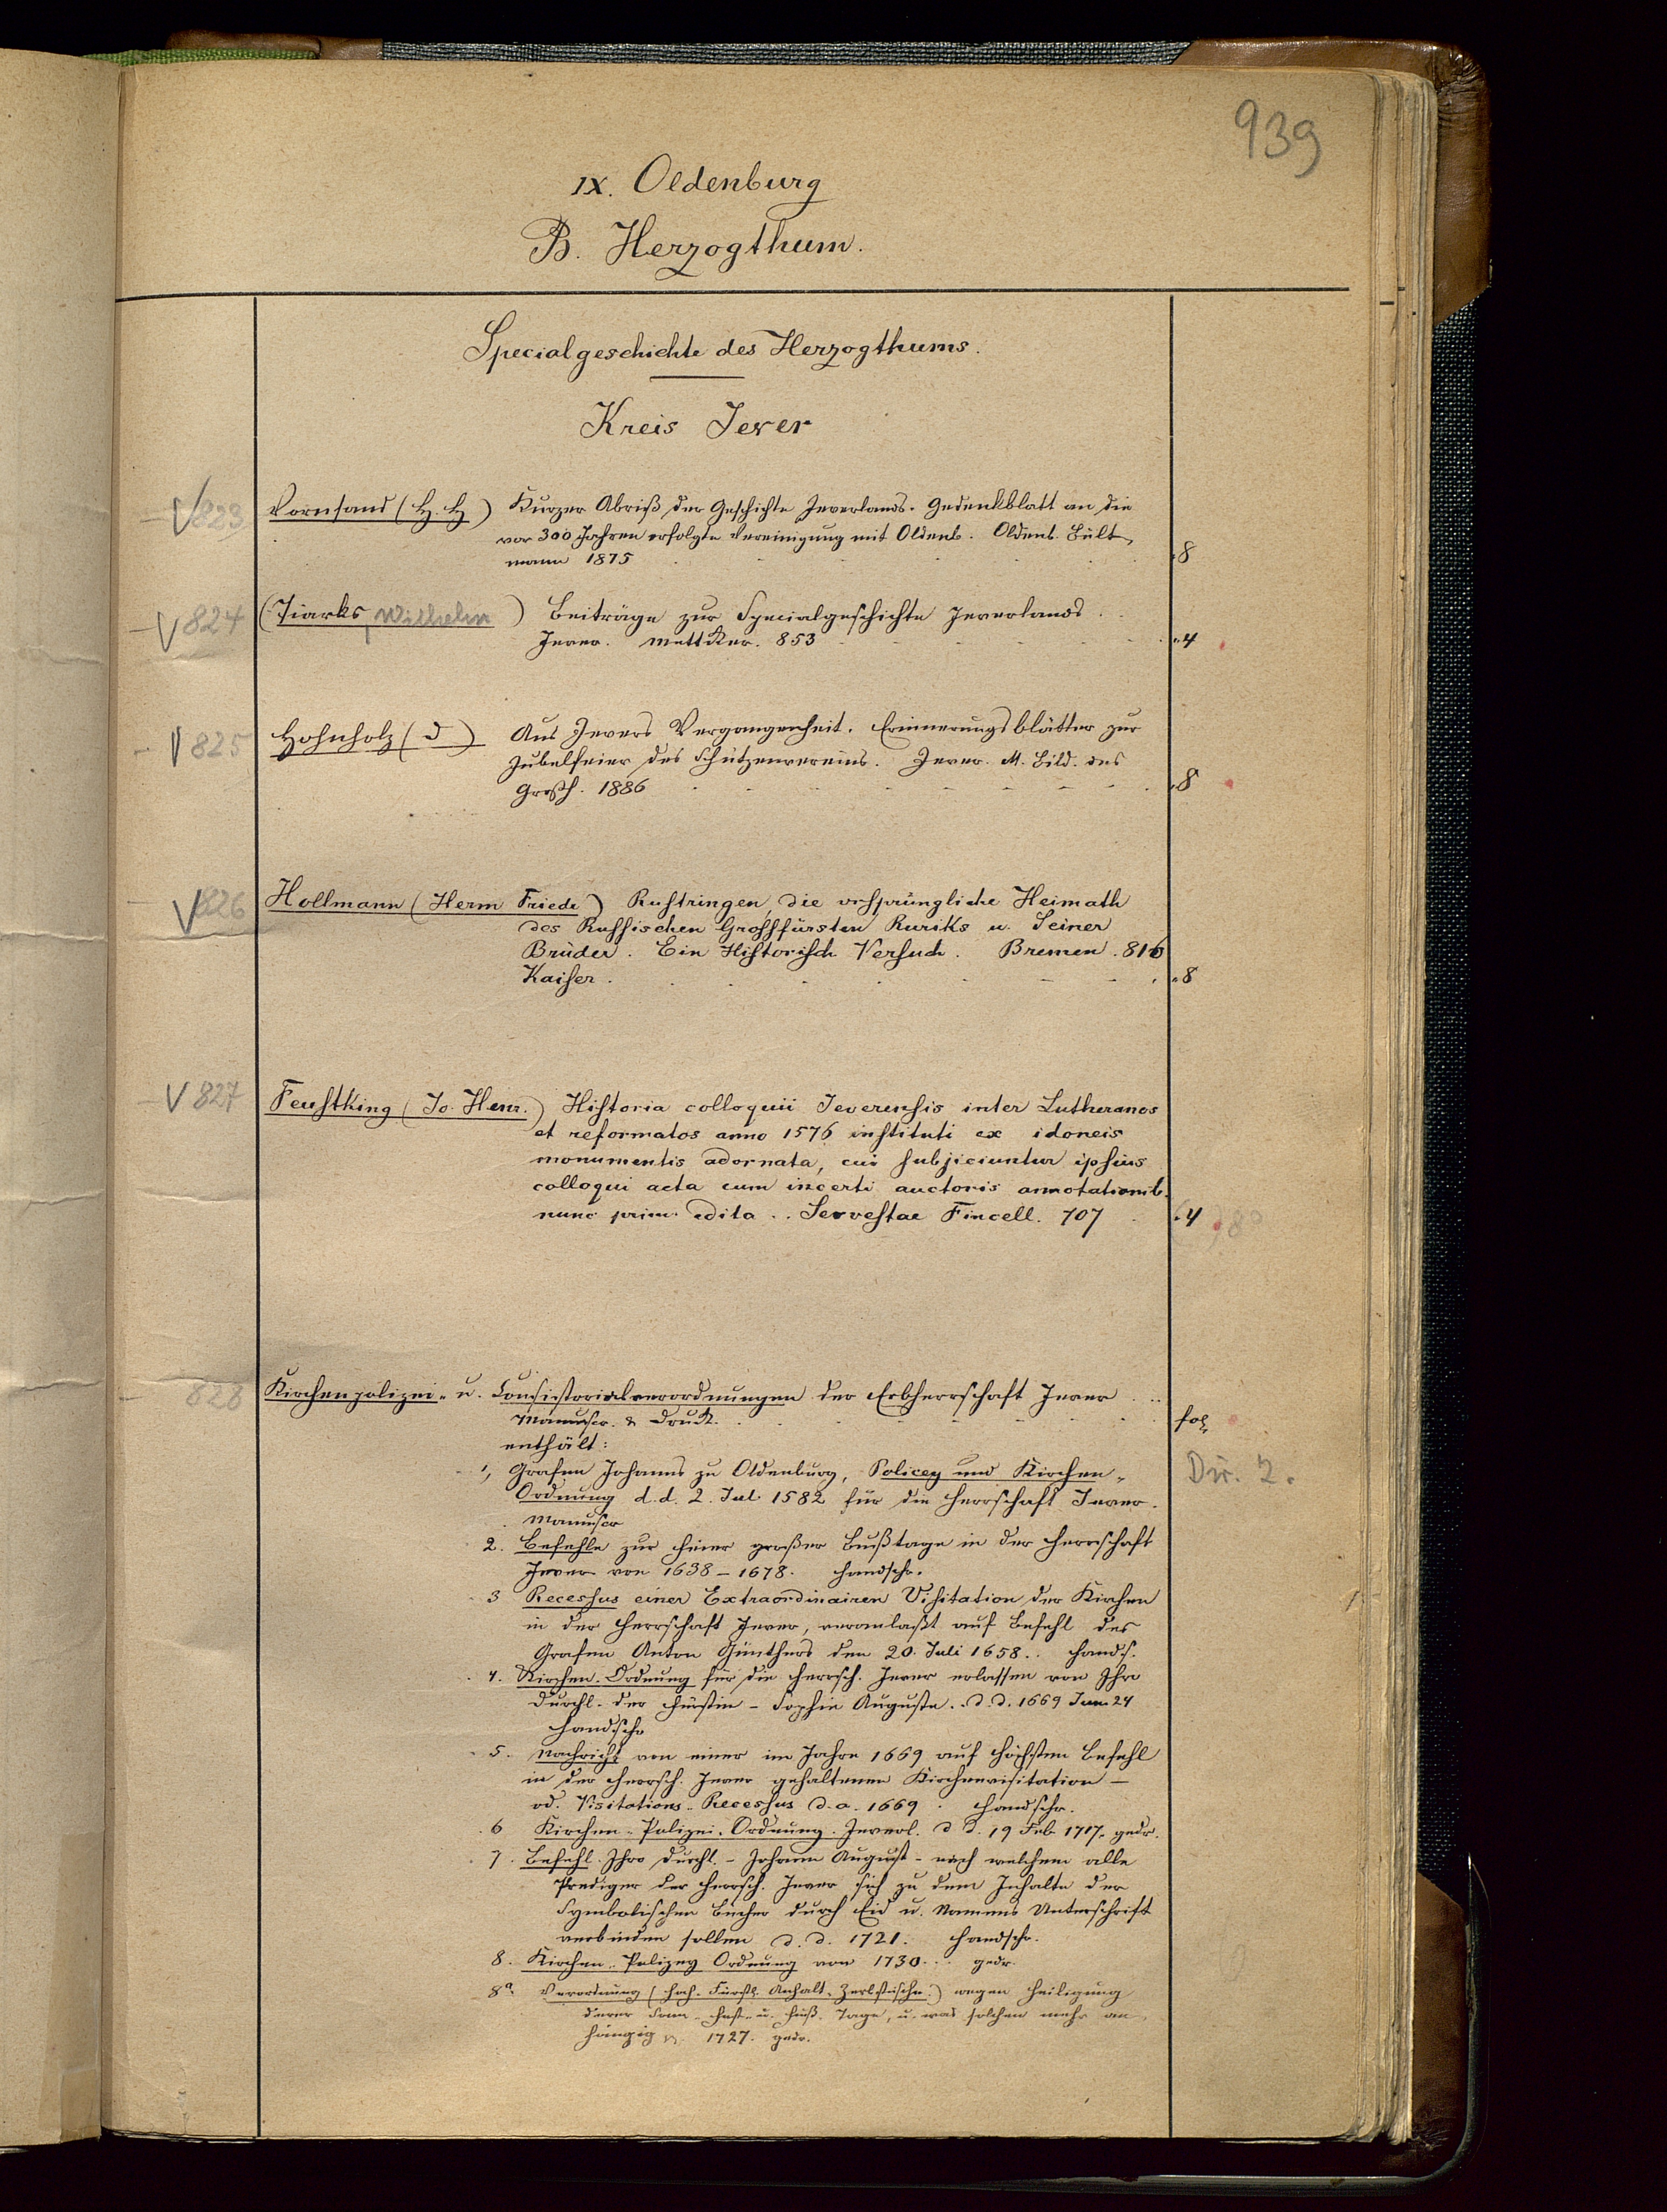 939
IX. Oldenburg
B. Herzogthum.
Specialgeschichte des Herzogthums.
Kreis Jever
V 823 Vornsand (H. H) Kurzer Abriß der Geschichte Jeverlands. Gedenkblatt an die
vor 300 Jahren erfolgte Vereinigung mit Oldenb. Oldenb. Bült,
mann 1875 8
V 824 (Tiarks, Wilhelm) Beiträge zur Specialgeschichte Jeverlands.
Jever. Mettcker. 853 4
V 825 Hohnholz (D) Aus Jevers Vergangenheit. Erinnerungsblätter zur
Jubelfeier des Schützenvereins. Jever. M. Bild. des
Großh. 1886 8
V 826 Hollmann (Herm Friede) Rustringen, die ursprüngliche Heimath
des Russischen Grossfürsten Ruriks u. Seiner
Brüder. Ein Historisch Versuch. Bremen. 816
Kaiser. 8
V 827 Feustking (Jo. Henr.) Historia colloquii Jeverensis inter Lutheranos
et reformatos anno 1576 instituti ex idoneis
monumentis adornata, cui subjiciuntur ipsius
colloqui acta cum incerti auctoris annotationib.
nunc prim. edita .. Servestae Fincell. 707 4 8°
828 Kirchenpolizei- u. Consistorialverordnungen der Erbherrschaft Jever
Manuscr. & Druck. fol
enthält:
1, Grafen Johanns zu Oldenburg, Policey und Kirchen- Dir. 2.
Ordnung d.d. 2. Jul 1582 für die Herrschaft Jever.
Manuscr
2. Befehle zur Feier großer Bußtage in der Herrschaft
Jever von 1638 – 1678. Handschr.
3 Recessus einer Extraordinairen Visitation der Kirchen
in der Herrschaft Jever, veranlaßt auf Befehl des
Grafen Anton Günthers den 20. Juli 1658.. Hands.
4. Kirchen-Ordnung für die Herrsch. Jever erlassen von Ihro
Durchl. der Fürstin – Sophie Auguste. d.d. 1669 Jun 24
Handschr
5. Nachricht von einer im Jahre 1669 auf höchsten Befehl
in der Herrsch. Jever gehaltenen Kirchenvisitation –
od. Visitations-Recessus d.a. 1669. Handschr.
6 Kirchen-Polizei-Ordnung. Jeverl. d d. 19 Feb 1717. gedr.
7. Befehl Ihro Durchl. – Johann August – nach welchem alle
Prediger der Herrsch. Jever sich zu dem Inhalte der
Symbolischen Bücher durch Eid u. Namens Unterschrift
verbinden sollen d. d. 1721. Handschr.
8. Kirchen-Polizey Ordnung von 1730... gedr.
8a. Verordnung (Hoch-Fürstl. Anhalt-Zerbstische.) wegen Heiligung
derer Sonn- Fest- u. Buß-Tage, u. was solchen mehr an-
hängig 1727. gedr.